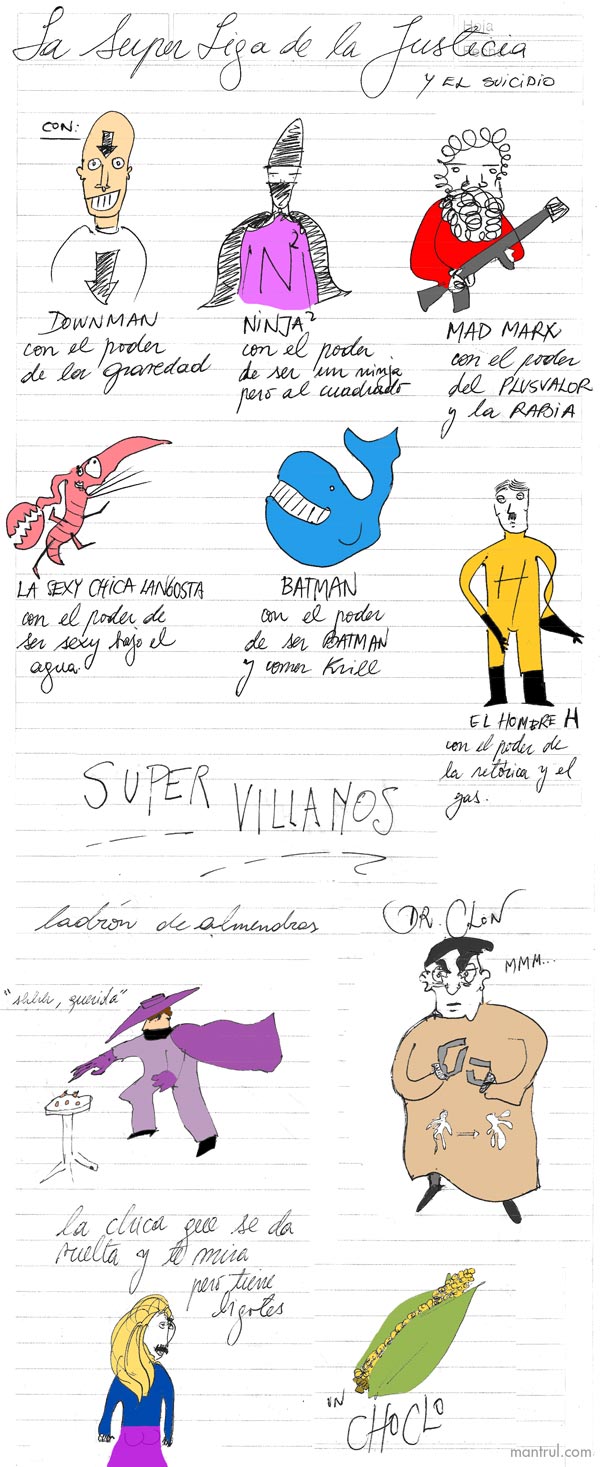 La Super Liga de la Justicia
Y EL SUICIDIO
CON:
DOWNMAN
con el poder
de la gravedad
N²
NINJA²
con el poder
de ser un ninja
pero al cuadrado
MAD MARX
con el poder
del PLUSVALOR
y la RABIA
LA SEXY CHICA LANGOSTA
con el poder de
ser sexy bajo el
agua.
BATMAN
con el poder
de ser BATMAN
y comer Krill
H
EL HOMBRE H
con el poder de
la retórica y el
gas.
SUPER
VILLANOS
ladrón de almendras
querida"
DR. CLON
MMM...
la chica que se da
vuelta y te mira
pero tiene
bigotes
UN
CHOCLO
mantrul.com